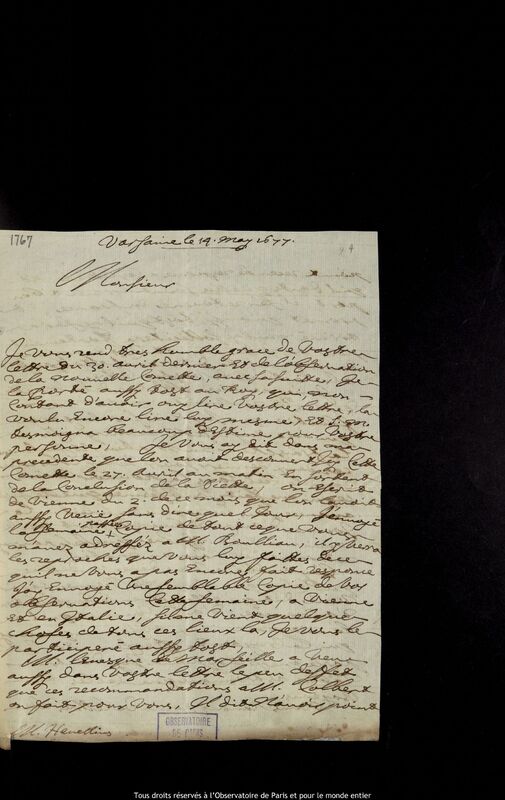 1767
Varsavie le 14. may 1677.
Monsieur
Je vous rend tres humble grace de vostre
lettre du 30. avril dernier et de l'observation
de la nouvelle Comette,
la porté aussy tost au Roy, qui, non
content d'avoir ouy lire vostre lettre, la
voulu encore lire luy mesme, et
tesmoigne beaucoup d'estime pour vostre
personne. Je vous ay dit dans ma
precedente que l'on avoit descouvert icy cette
Comette le 27. avril au matin
de la Conclusion de la Diette, on escrit
de Vienne du 2 de ce mois que l'on l'avoit
aussy veüe sans dire quel jour. J'envoye
la semaine passée Copie de tout ce que vous
m'avez adressé a M. Boulliau, il y verra
les reproches que vous luy faittes de ce
qu'il ne vous a pas encore fait response
J'ay envoyé une semblable Copie de vos
observations cette semaine, a Vienne
et en Italie, si l'on vient quelque
choses de tous ces lieux la, Je vous le
participeré aussy tost.
M. l'evesque de Marseille a veu
aussy dans vostre lettre le peu d'effet
que ces recommandations a M. Colbert
on fait pour vous, Il dit n'avoir point
M. Hevellius
OBSERVATOIRE
DE PARIS
Tous droits réservés à l'Observatoire de Paris et pour le monde entier